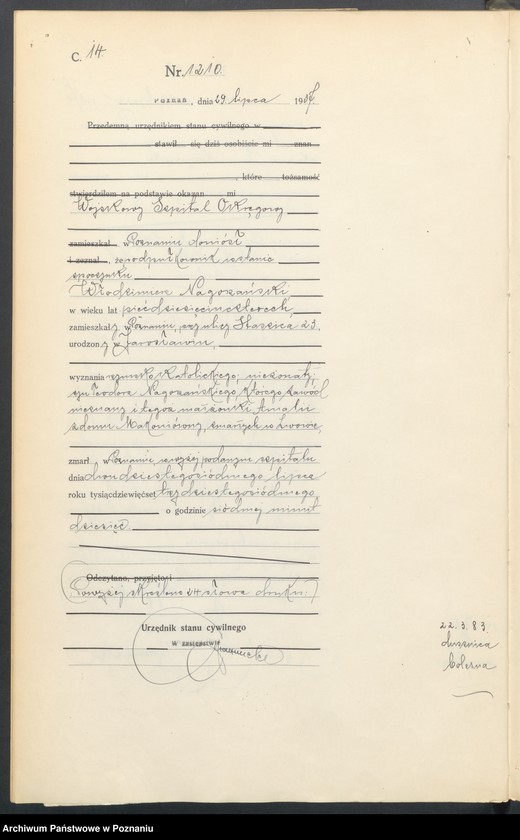 C. 14.
Nr. 1210.
Poznań, dnia 29 lipca 1937
Przedemną urzędnikiem stanu cywilnego w
, stawił się dziś osobiście mi znan
, które tożsamość
stwierdziłem na podstawie okazan mi
Wojskowy Szpital Okręgowy
zamieszkał w Poznaniu doniósł
i zeznał, że podpułkownik w stanie
spoczynku
Włodzimierz Nagórzański
w wieku lat pięćdziesięciu czterech,
zamieszkały w Poznaniu, przy ulicy Staszica 23.
urodzony w Jarosławiu,
wyznania rzymsko katolickiego, nieżonaty,
syn Teodora Nagórzańskiego, którego zawód
nieznany i tegoż małżonki Amalii
z domu zmarłych w Lwowie,
zmarł w Poznaniu w wyżej podanym szpitalu
dnia dwudziestegosiódmego lipca
roku tysiącdziewięćset trzydziestegosiódmego
o godzinie siódmej minut
dziesięć.
Odczytano, przyjętoś
Powyżej skreślono 24 słowa druku.
Urzędnik stanu cywilnego
w zastępstwie
22.3.83.
dusznica
bolesna
Archiwum Państwowe w Poznaniu